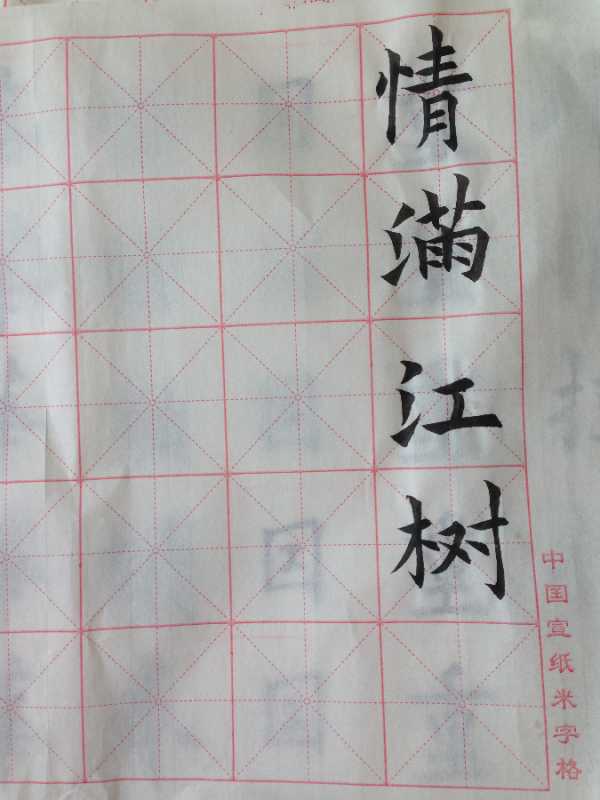 情满江树
中国宣纸米字格